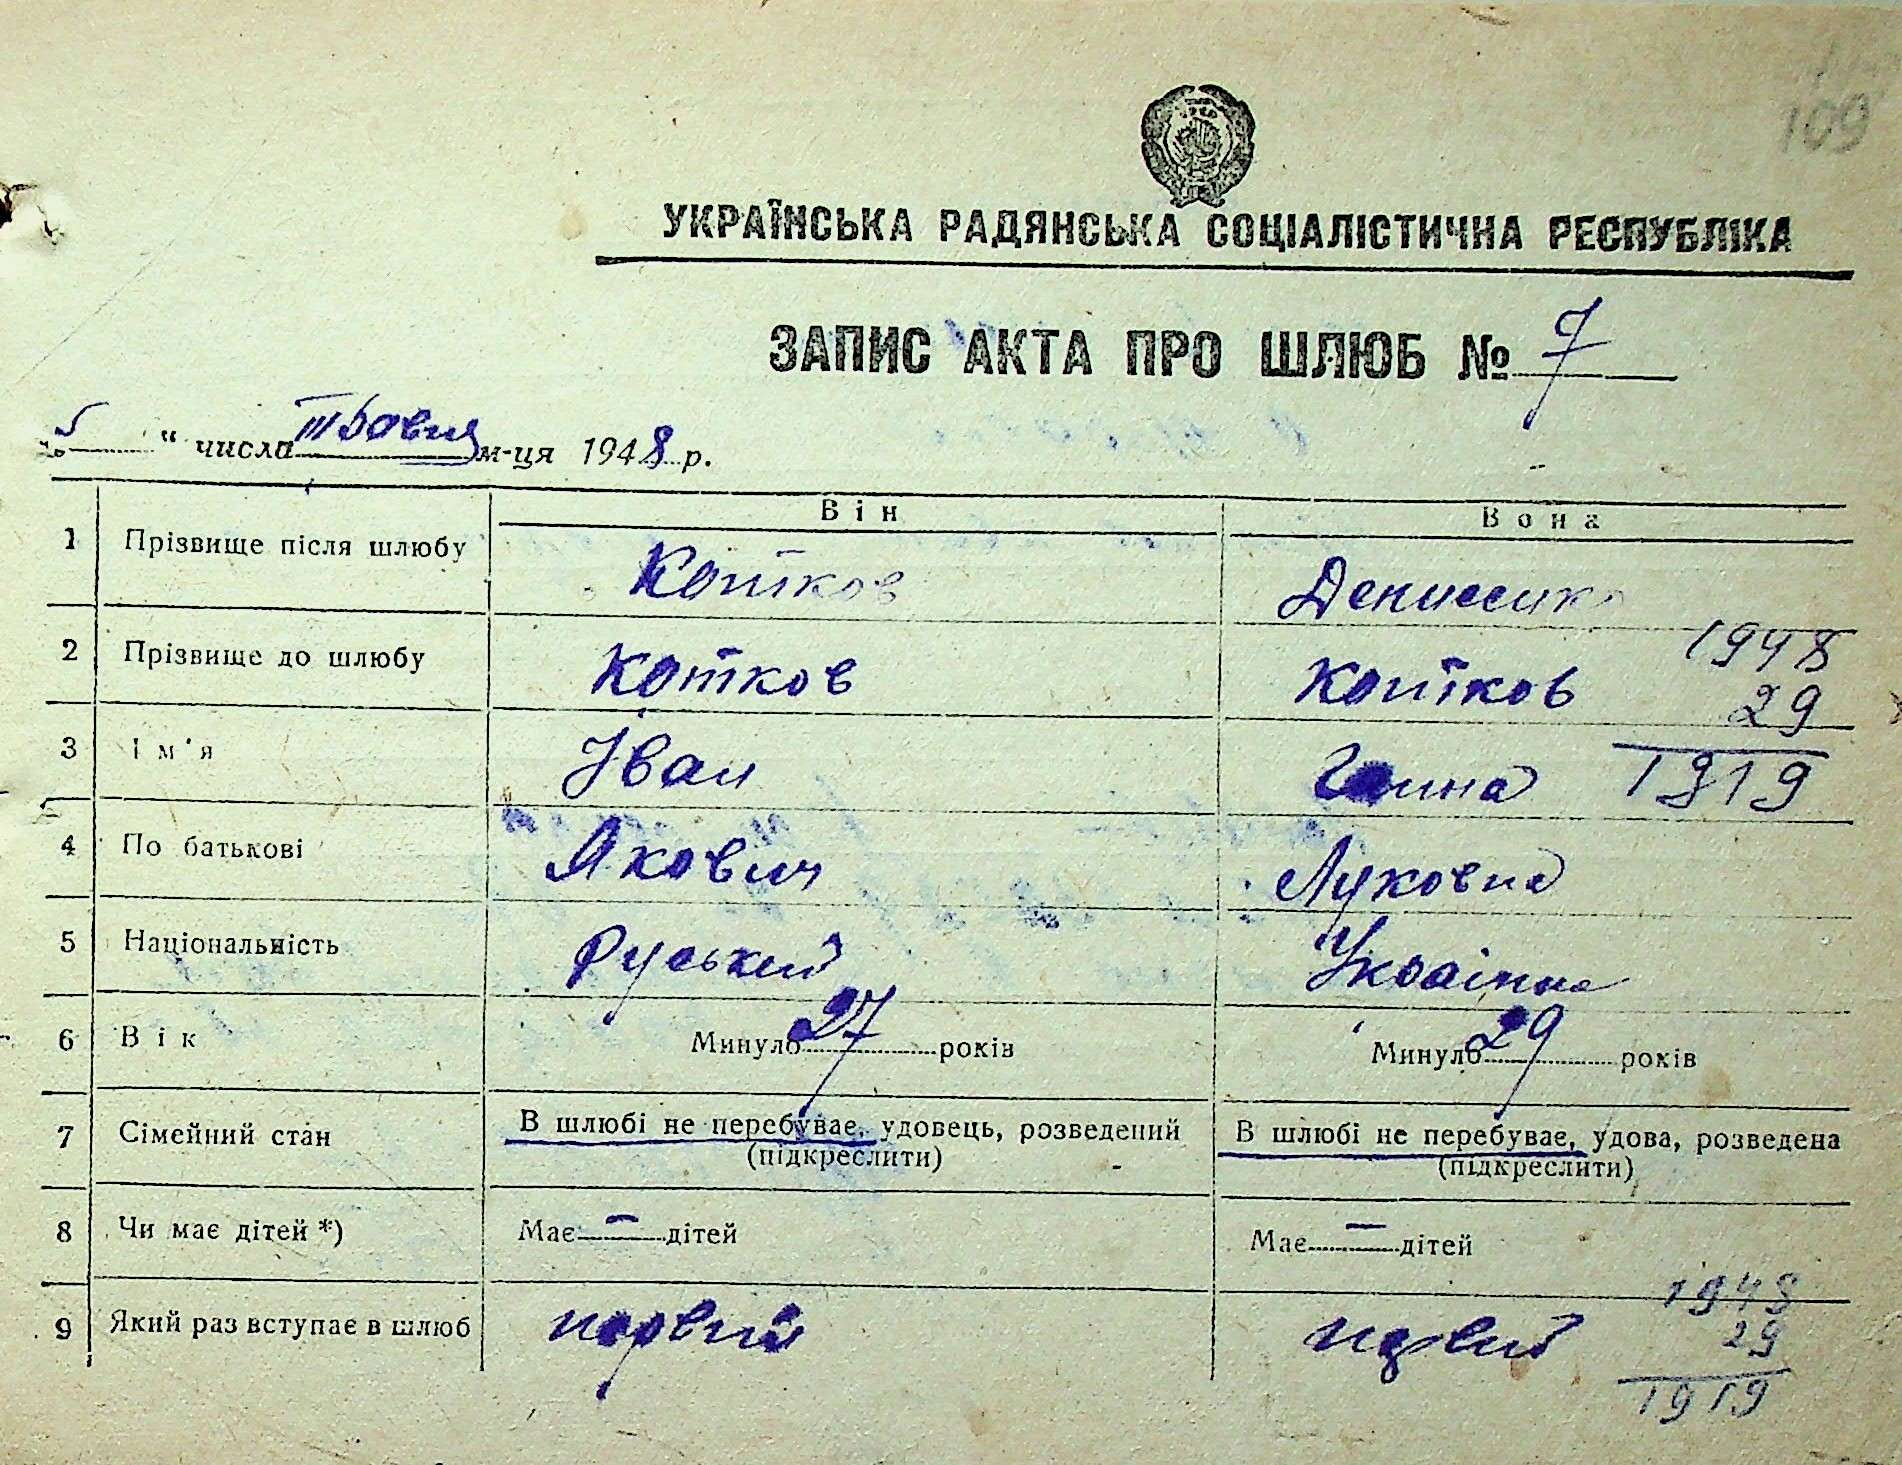 109
УКРАЇНСЬКА РАДЯНСЬКА СОЦІАЛІСТИЧНА РЕСПУБЛІКА
ЗАПИС АКТА ПРО ШЛЮБ № 7
„5“ числа травня м-ця 1948 р.
Він Вона
1 Прізвище після шлюбу Котков
2 Прізвище до шлюбу Котков Котков 1948
29
3 Ім'я Іван Ганна 1919
4 По батькові Якович Луковна
5 Національність Руський Украінка
6 Вік Минуло 27 років Минуло 29 років
7 Сімейний стан В шлюбі не перебуває, удовець, розведений В шлюбі не перебуває, удова, розведена
(підкреслити) (підкреслити)
8 Чи має дітей *) Має — дітей Має — дітей
1948
9 Який раз вступає в шлюб первий 29
1919